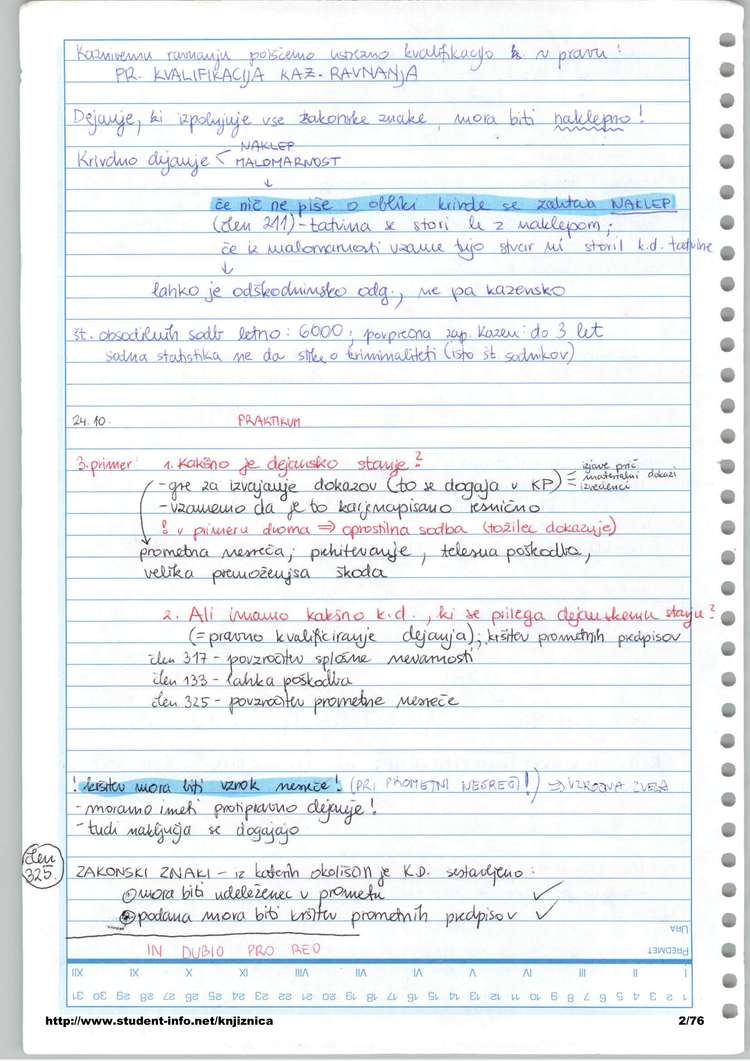 Kaznivemu ravnanju poiščemo ustrezno kvalifikacijo v pravu:
PR. KVALIFIKACIJA KAZ. RAVNANJA
Dejanje, ki izpolnjuje vse zakonske znake, mora biti naklepno!
Krivdno dejanje < NAKLEP
MALOMARNOST
↓
če nič ne piše o obliki krivde se zahteva NAKLEP
(člen 211) - tatvina se stori le z naklepom;
če iz malomarnosti vzame tujo stvar ni storil k.d. tatvine
↓
lahko je odškodninsko odg., ne pa kazensko
št. obsodilnih sodb letno: 6000; povprečna zap. kazen: do 3 let
sodna statistika ne da slike o kriminaliteti (isto št sodnikov)
24.10. PRAKTIKUM
3.primer: 1. Kakšno je dejansko stanje?
- gre za izvajanje dokazov (to se dogaja v KP) izjave prič
materialni dokazi
izvedenci
- vzamemo da je to kar je napisano resnično
! v primeru dvoma ⇒ oprostilna sodba (tožilec dokazuje)
prometna nesreča, prehitevanje, telesna poškodba,
velika premoženjsa škoda
2. Ali imamo kakšno k.d., ki se prilega dejanskemu stanju?
(= pravno kvalificiranje dejanja); kršitev prometnih predpisov
člen 317 - povzročitev splošne nevarnosti
člen 133 - lahka poškodba
člen 325 - povzročitev prometne nesreče
! kršitev mora biti vzrok nesreče! (PRI PROMETNI NESREČI!) ⇒ VZROČNA ZVEZA
- moramo imeti protipravno dejanje!
- tudi naključja se dogajajo
člen 325.
ZAKONSKI ZNAKI - iz katerih okoliščin je K.D. sestavljeno:
mora biti udeleženec v prometu ✓
podana mora biti kršitev prometnih predpisov ✓
IN DUBIO PRO REO
URA
PREDMET
I II III IV V VI VII VIII XI X IX XII
1 2 3 4 5 6 7 8 9 10 11 12 13 14 15 16 17 18 19 20 21 22 23 24 25 26 27 28 29 30 31
http://www.student-info.net/knjiznica 2/76